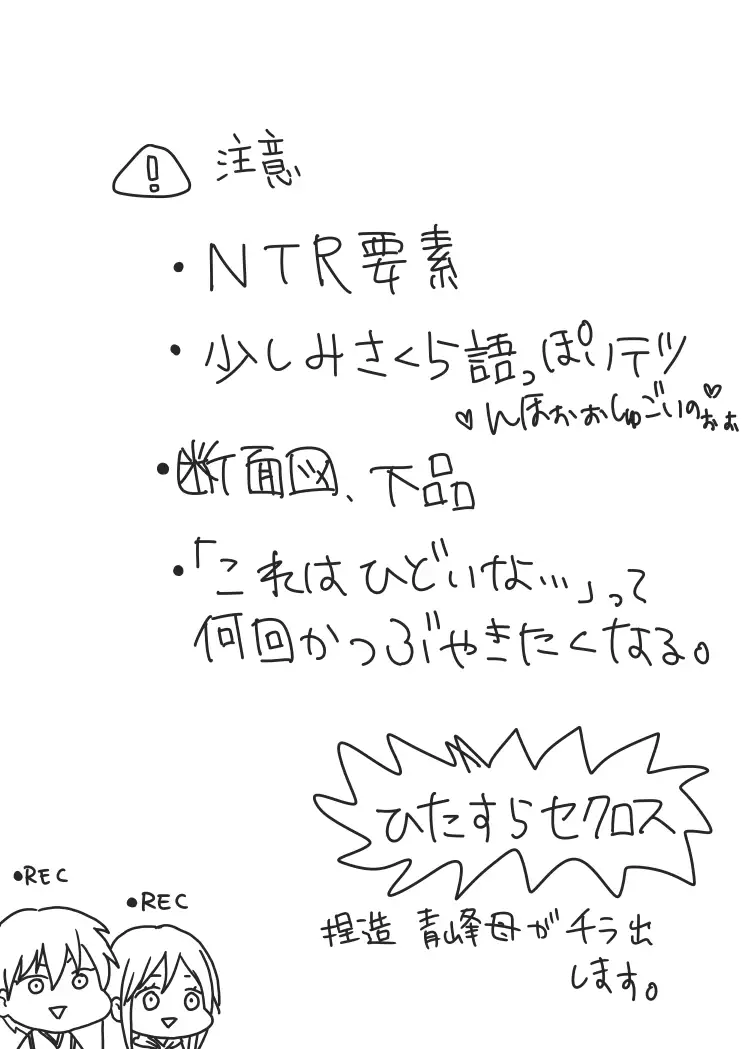 注意
・NTR要素
・少しみさくら語っぽいデツ
♡んほぉぉしゅごいのぉぉ♡
・断面図、下品
・「これはひどいな…」って
何回かつぶやきたくなる。
ひたすらセクロス
捏造 青峰母がチラ出
します。
●REC
●REC